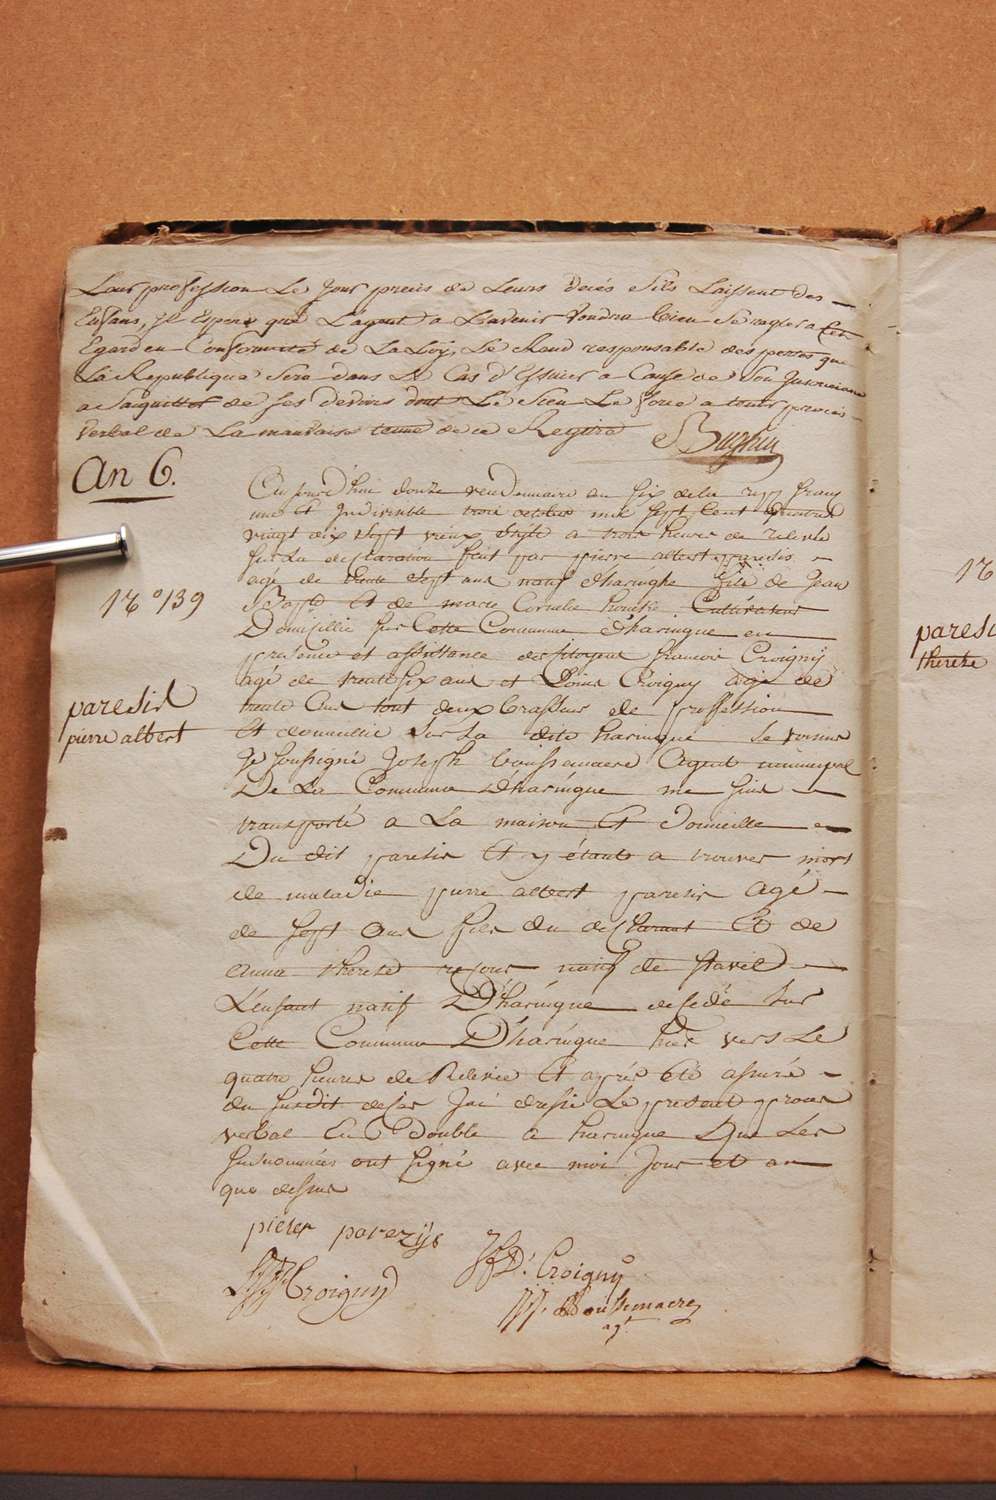 Leur profession Le Jour precis de Leurs decés Sils Laissent des
Enfans, Je Espere que L'agent a Lavenir voudra bien Se regler a Cet
Egard en Conformité de La Loÿ, Le Rend responsable des pertes que
La Republique Sera dans le Cas d'Essuier a Cause de Son Insouciance
a S'aquitter de Ses devoirs dont Le Sien Le force a tenir proces
verbal de La mauvaise tenue de ce Registre
An 6.
Cujourd'hui douze vendemiaire an Six de la rep. franç
une et Indivisible trois octobre mil Sept Cent
vingt dix Sept vieux Stile a trois heures de Relevée
Sur La declaration fait par pierre albert paresis
agé de trente Sept ans natif d'haringhe fils de Jean
Bapte Et de marie Cornelie Cultivateur
Domisilié Sur Cette Commune d'haringue en
presence et assistance des Sitoyens francois Croigny
agé de trente Six ans et Croigny agé de
trente Ans tout deux brasseur de proffession
Et domicilié Sur La dite haringue
Je Soussigné Joseph boussemaere Agent municipal
De La Commune D'haringue me Suis
transporté a La maison Et Domicille
Du dit paresis Et y étant a trouver mort
de maladie pierre albert paresis agé
de Sept Ans fils du desclarant Et de
Anna therese natif de Stavel
L'enfant natif D'haringue desedé Sur
Cette Commune D'haringue hier vers Le
quatre heures de Relevée Et aprés eté assuré
du Susdit deses Jai dressé Le present proces
verbal En Double a haringue Que Les
Susnommées ont Signé avec moi Jour et an
que dessus
N.º 139
paresis
pierre albert
pieter parezijs
Croigny
Croigny
Boussemaere
agt
paresis
therese